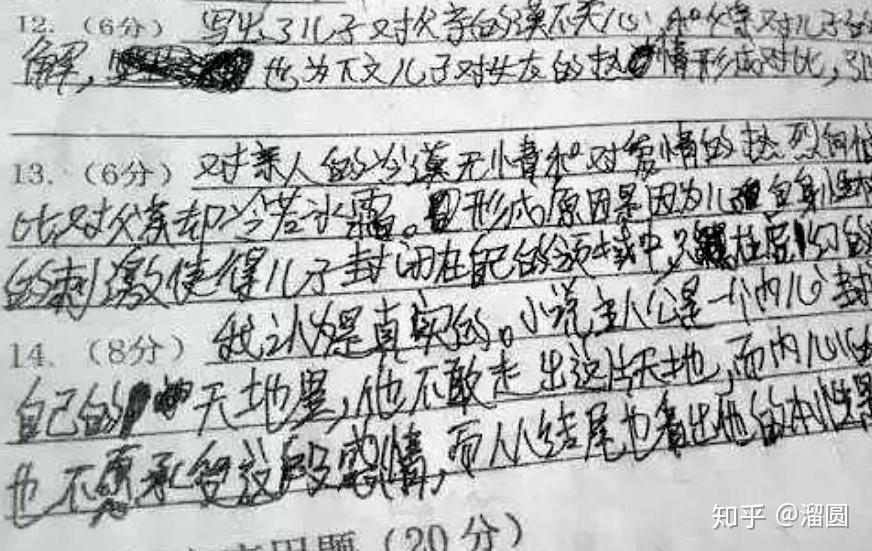 12.（6分）写出了儿子对父亲的漠不关心,和父亲对儿子的
解,也为下文儿子对女友的热情形成对比,
13.（6分）对亲人的冷漠无情和对爱情的热烈
比,对父亲却冷若冰霜。形成原因是因为儿自身性
的刺激使得儿子封闭在自己的领域中,只
14.（8分）我认为是真实的。小说主人公是一个内心封
自己的天地里,他不敢走出这片天地,而内心
也不愿承受这段爱情,而从结尾也看出他的本性
（20分）
知乎 @溜圆